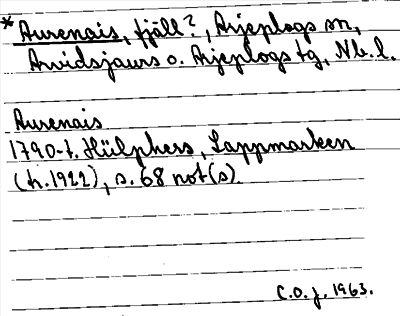 * Aurenais, fjäll?, Arjeplogs sn,
Arvidsjaurs o. Arjeplogs tg, Nb. l.
Aurenais
1790-t. Hülphers, Lappmarken
(tr. 1922), s. 68 not(s).
C.O.J. 1963.